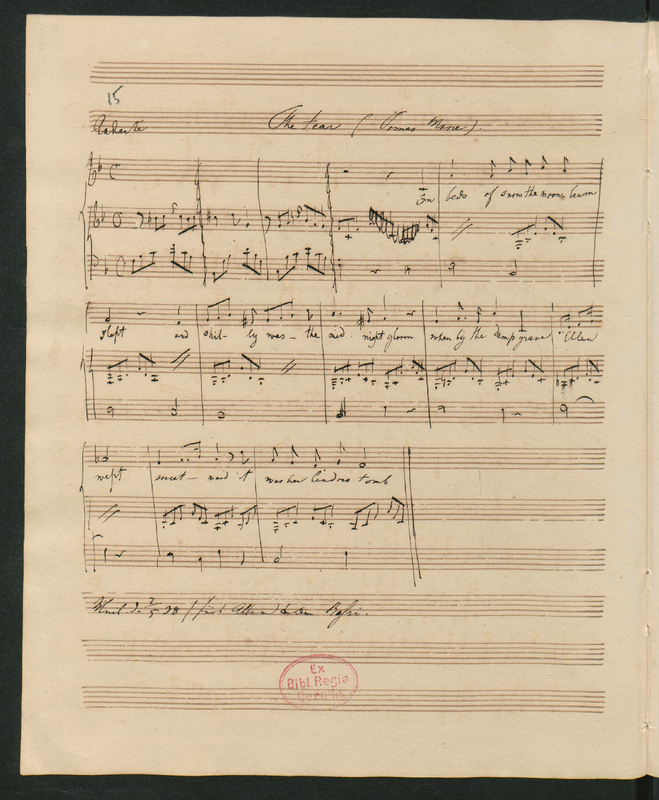 15
Andante The tear (Tomas More).
On beds of snow the moon beam
slept and chil-ly was-the mid night gloom when by the damp grave Ellen
wept sweet-maid it was her lindors tomb
28
Ex
Bibl. Regia
Berolin.